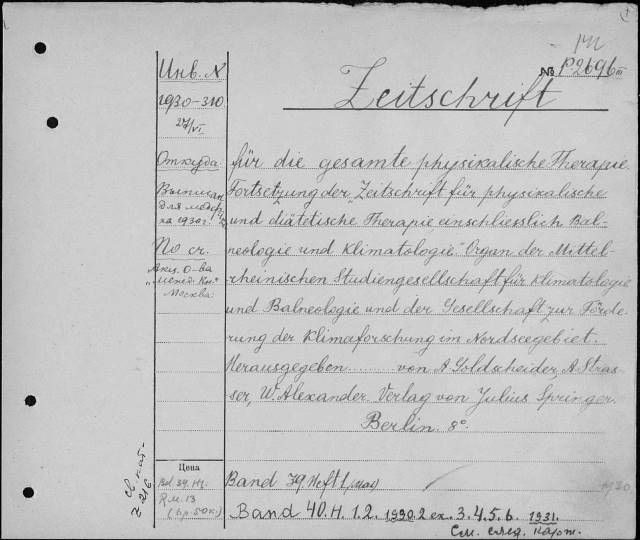 № P2696 III
Zeitschrift
Инв. N
1930-310
27/VI
Откуда:
Выписан
для
ка 1930 г.
По сч.
Акц. О-ва
„Межд. Кн.“
Москва.
für die gesamte physikalische Therapie.
Fortsetzung der Zeitschrift für physikalische
und diätetische Therapie einschliesslich Bal-
neologie und Klimatologie." Organ der Mittel-
rheinischen Studiengesellschaft für Klimatologie
und Balneologie und der Gesellschaft zur Förde-
rung der Klimaforschung im Nordseegebiet.
Herausgegeben ...... von A Goldscheider, A. Stras-
ser, W. Alexander. Verlag von Julius Springer.
Berlin. 8°.
Цена
Bd 39. H1.
R.M. 13
(6 р. 50 к.)
Band 39. Heft 1. 1930
Band 40. H. 1. 2. 1930. 2 ex. 3. 4. 5. 6. 1931.
См. след. карт.